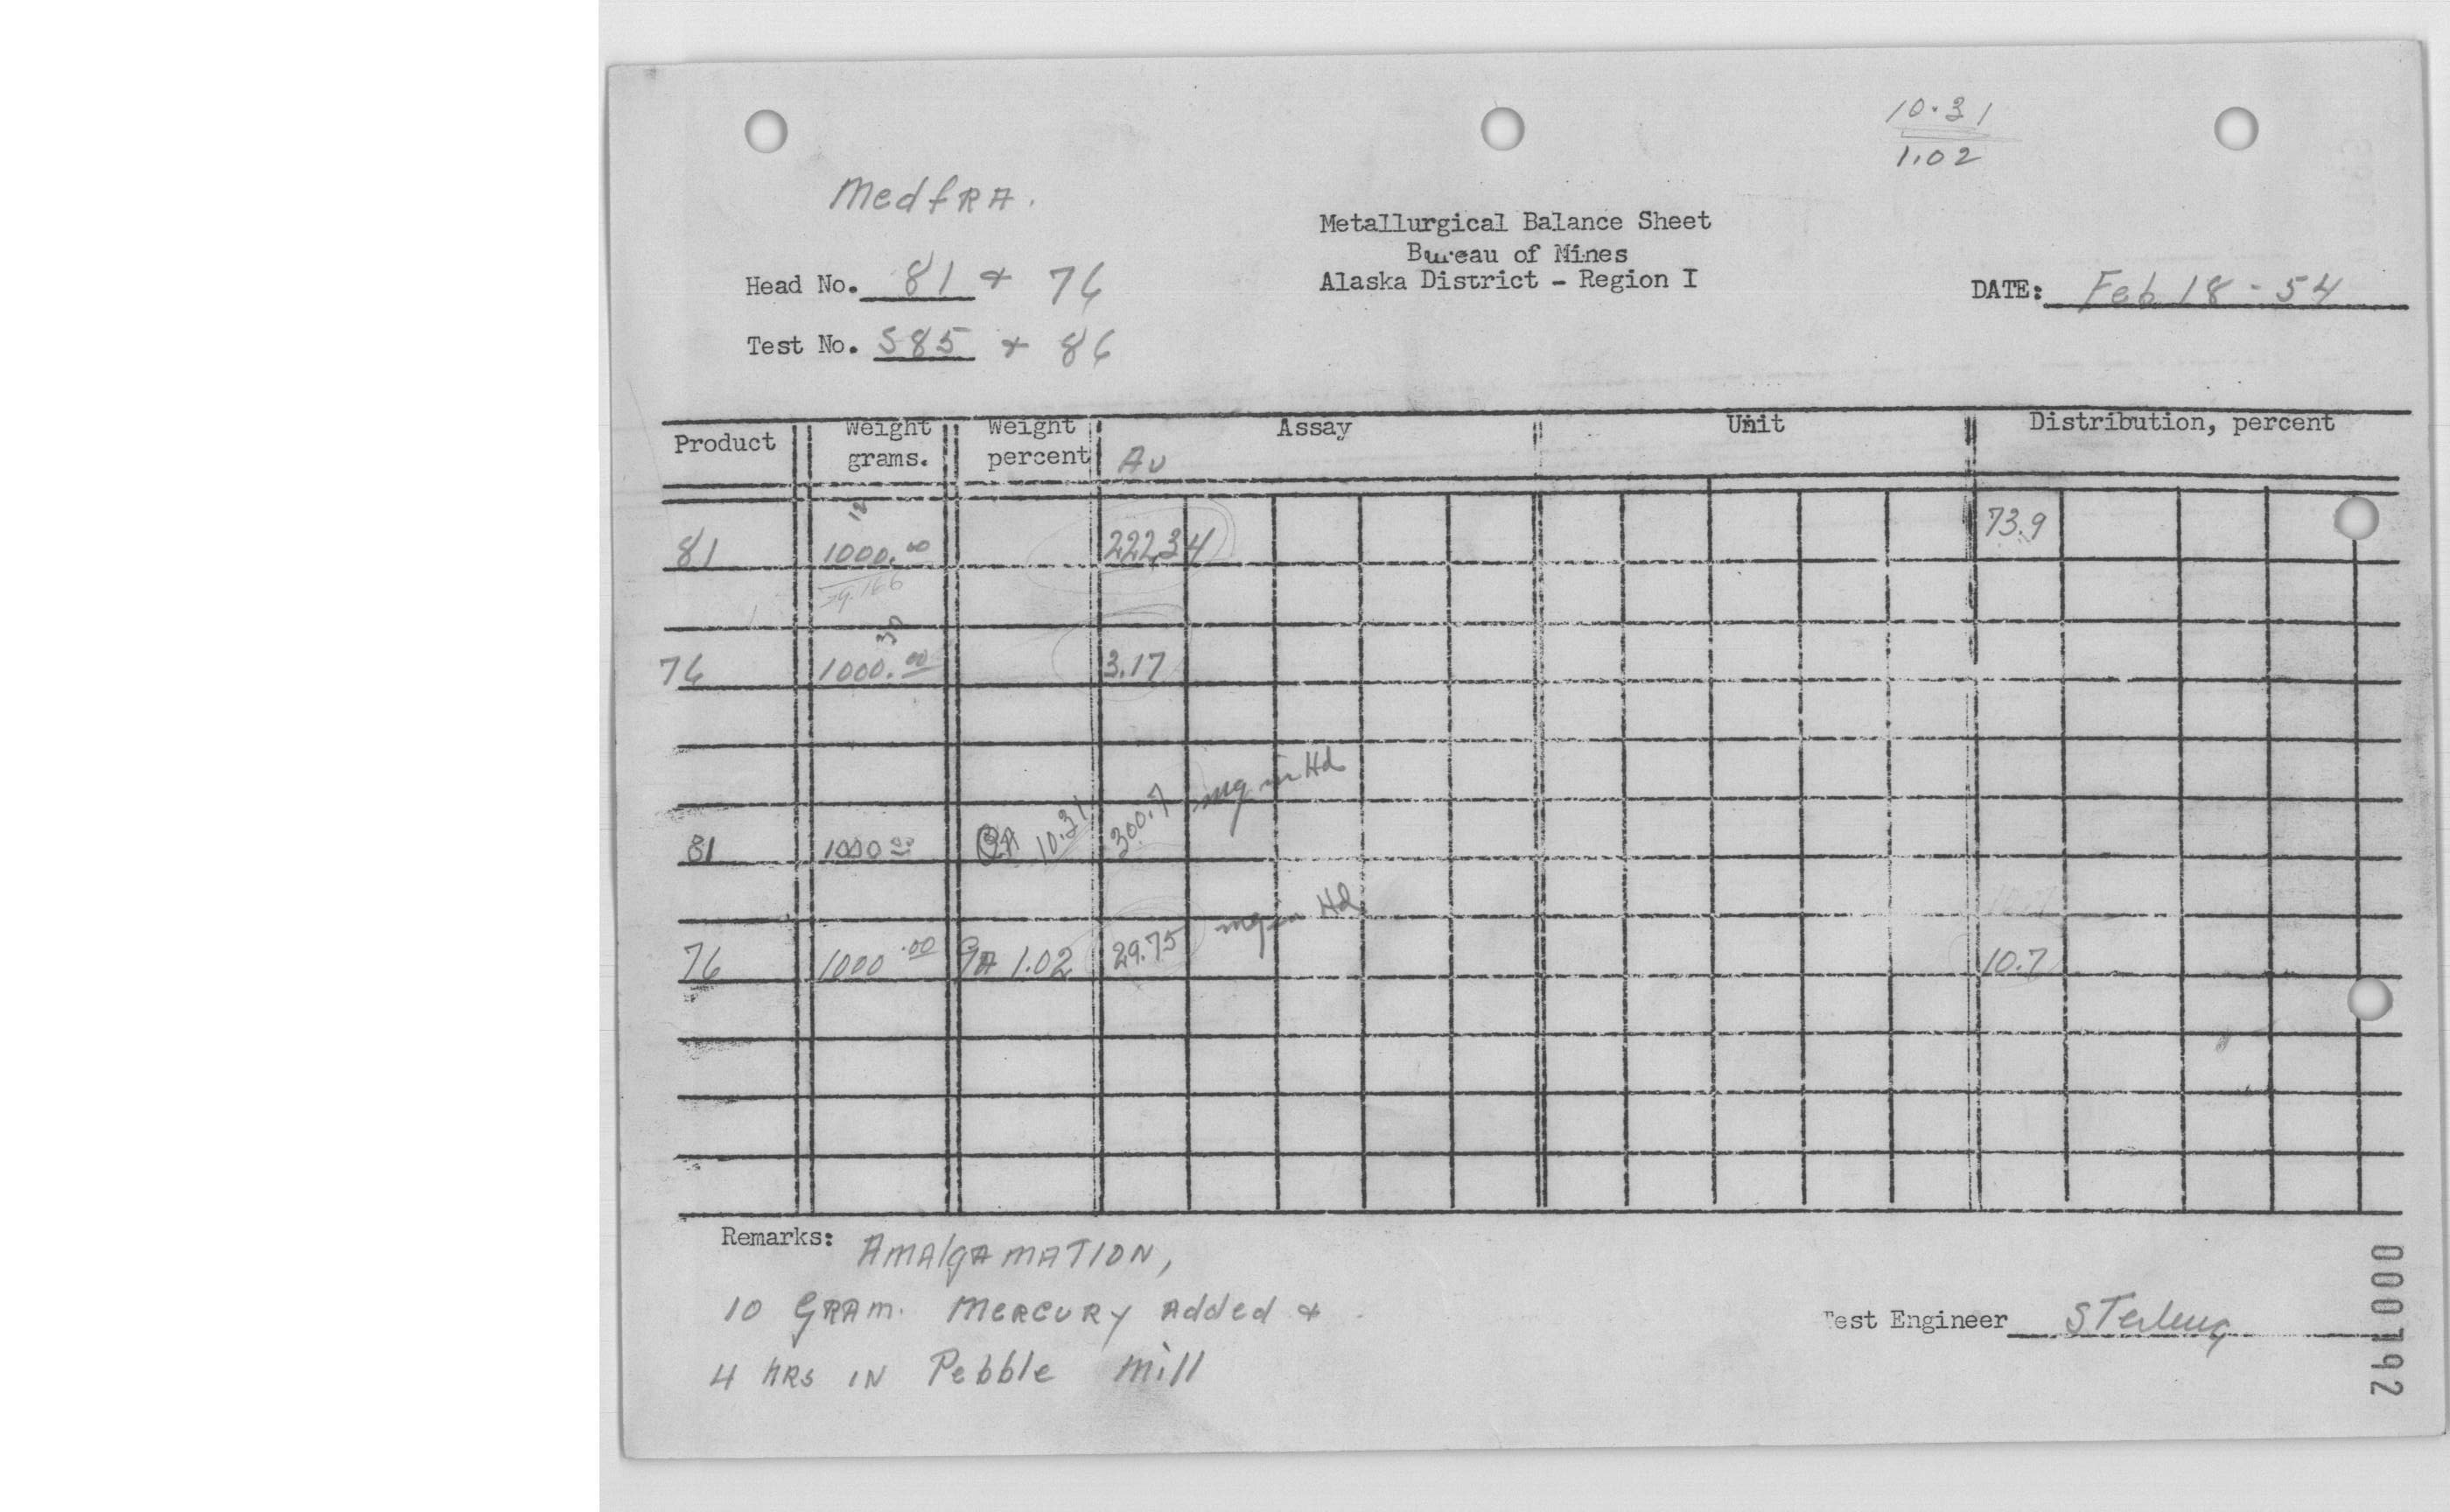 10.31
1.02
MedfRA.
Metallurgical Balance Sheet
Bureau of Mines
Alaska District - Region I
Head No. 81 + 76
DATE: Feb 18 - 54
Test No. S85 + 86
Product Weight grams. Weight percent Assay Unit Distribution, percent
Au
81 1000.00 222.34 73.9
76 1000.00 3.17
81 1000 00 10.31 300.7 mg in Hd
76 1000.00 gA 1.02 29.75 mg in Hd 10.7
Remarks: AMAlgAMATION,
10 GRAM. MERCURY Added +
4 HRS IN Pebble Mill
Test Engineer STerling
000792